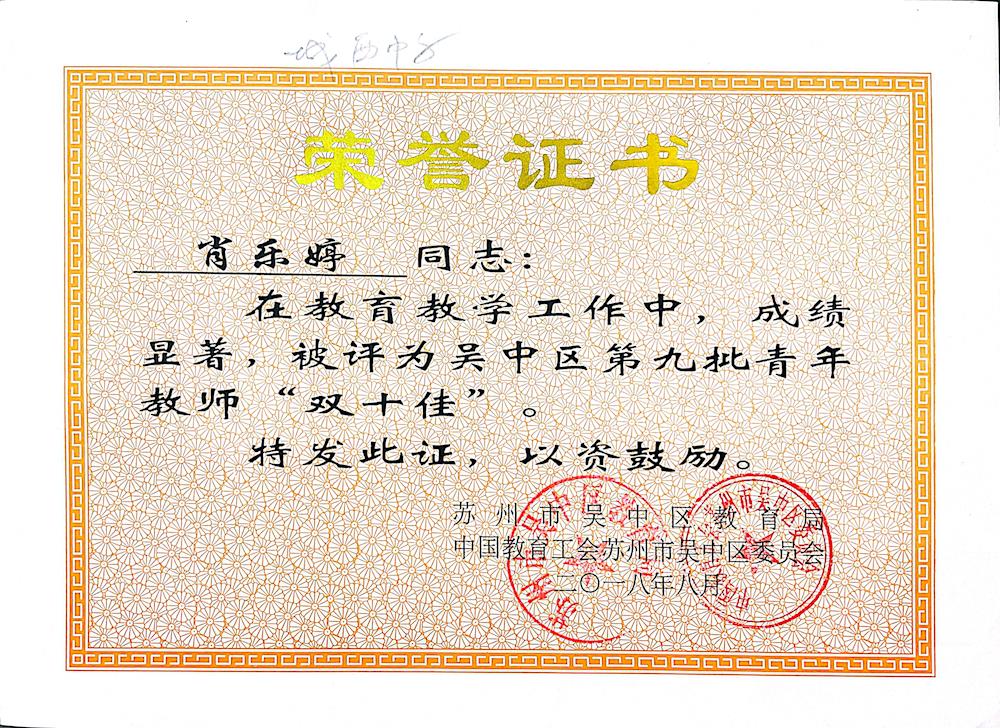 城西中学
荣誉证书
肖乐婷 同志：
在教育教学工作中，成绩
显著，被评为吴中区第九批青年
教师“双十佳”。
特发此证，以资鼓励。
苏州市吴中区教育局
中国教育工会苏州市吴中区委员会
二〇一八年八月